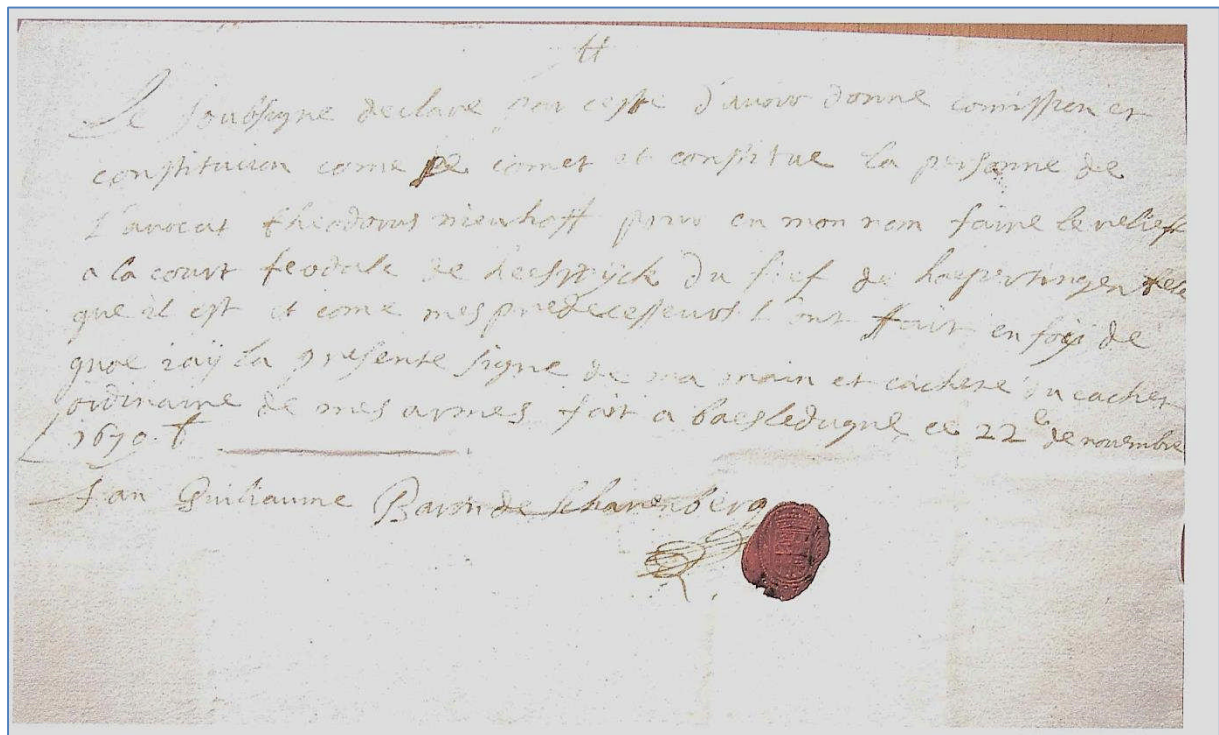 Le soubsigne declare par ceste d'avoir donne comission et
constitucion come je comet et constitue la personne de
l'avocat theodorus nieuhoff pour en mon nom faire le relieff
a la court feodale de du fief de hoepertingen tele
que il est et come mes predecesseurs l'ont ffait en foy de
quoe iaÿ la presente signe de ma main et cachete du cachet
ordinaire de mes armes fait a baesleducque ce 22e de novembre
1670
Jan Guiliaume Baron de Scharenberg